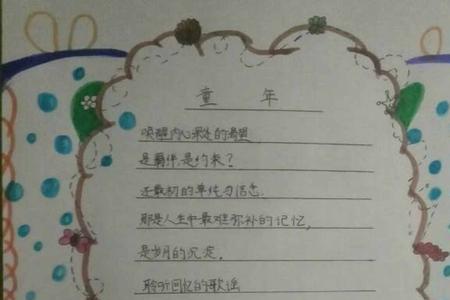 童年
唤醒内心深处的渴望
是羁绊,是约束?
还最初的单纯与信念.
那是人生中最难弥补的记忆,
是岁月的沉淀,
聆听回忆的歌谣